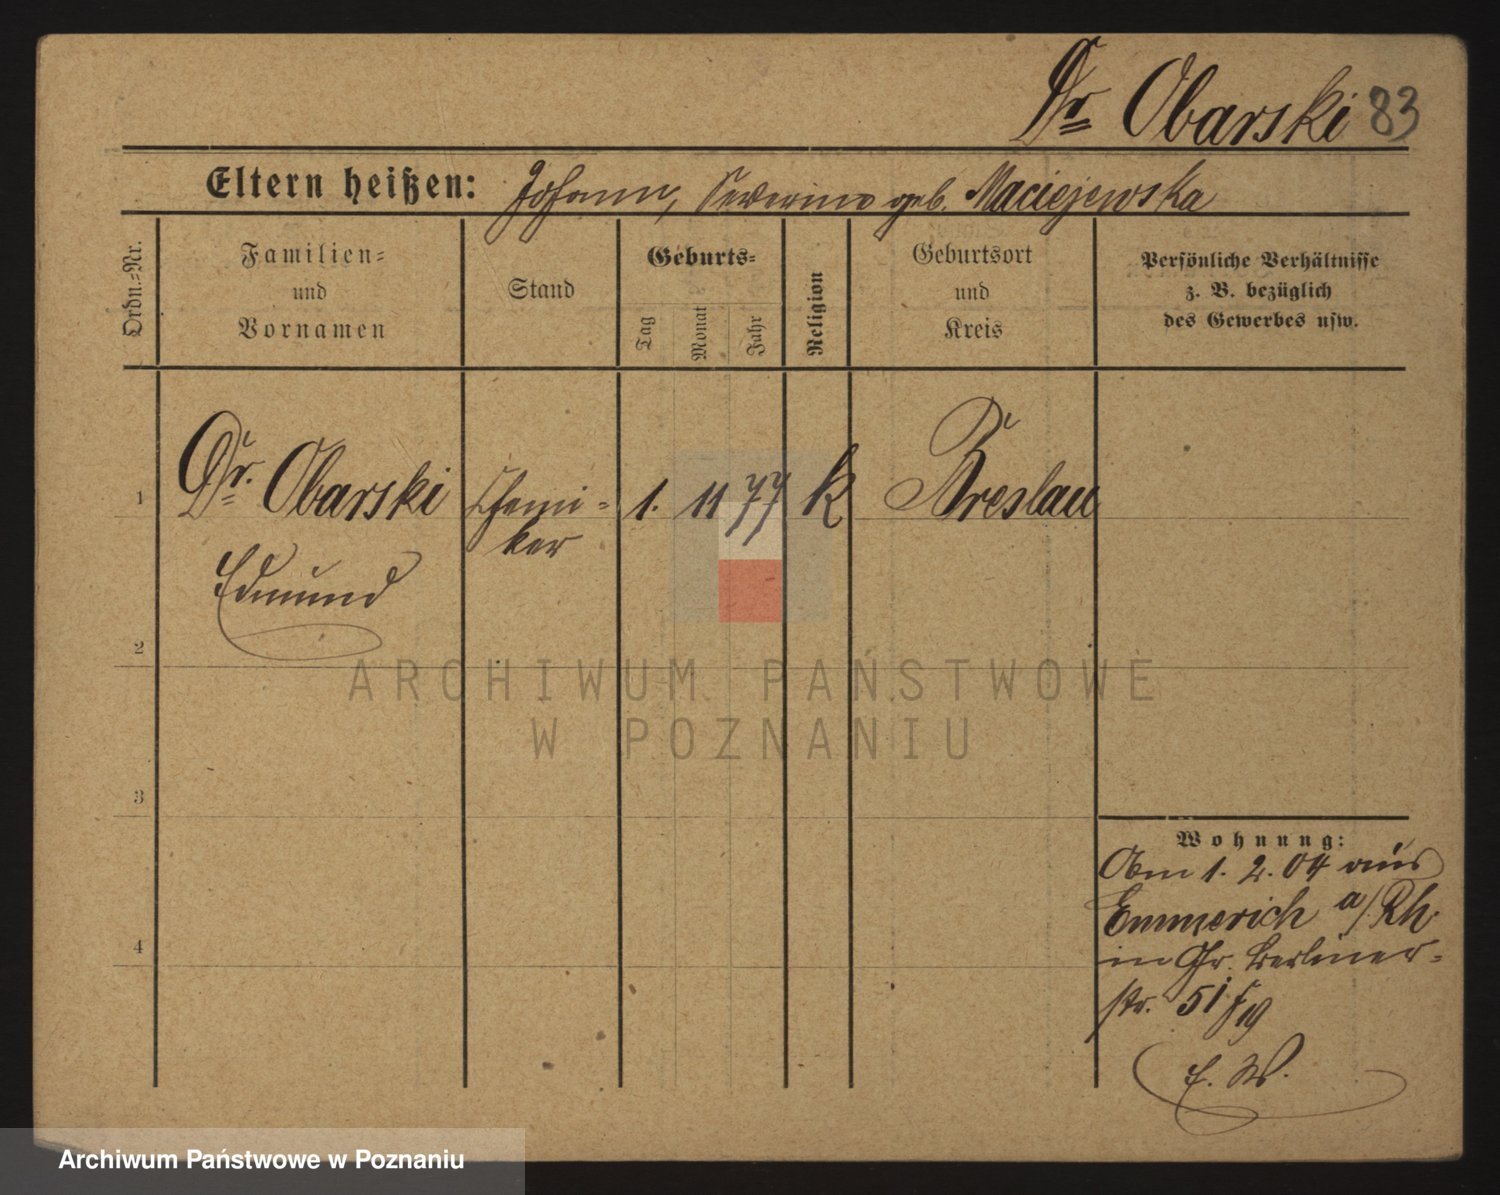 Dr Obarski 83
Eltern heißen: Johann, Severina geb. Maciejewska
Ordn.-Nr.
Familien-
und
Vornamen
Stand
Geburts-
Tag
Monat
Jahr
Religion
Geburtsort
und
Kreis
Persönliche Verhältnisse
z. B. bezüglich
des Gewerbes usw.
1 Dr. Obarski Chemi- 1. 11 77 k Breslau
ker
Edmund
2
3
4
Wohnung:
Am 1. 2. 04 aus
Emmerich a/Rh.
in Gr. Berliner-
str. 51
E. W.
ARCHIWUM PAŃSTWOWE
W POZNANIU
Archiwum Państwowe w Poznaniu